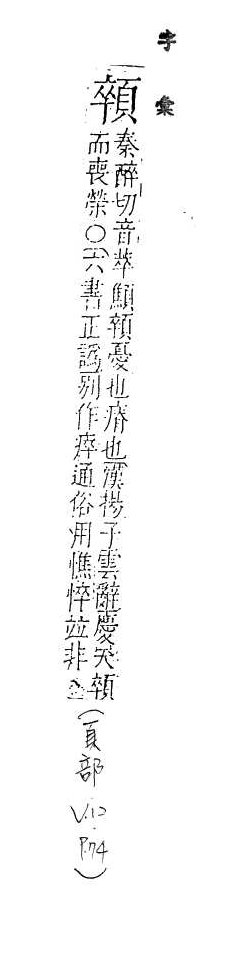 字彙
顇
秦醉切音萃顦顇憂也瘠也漢揚子雲辭慶夭顇
而喪榮○六書正譌別作瘁通俗用憔悴竝非
(頁部
V.12
P.74)